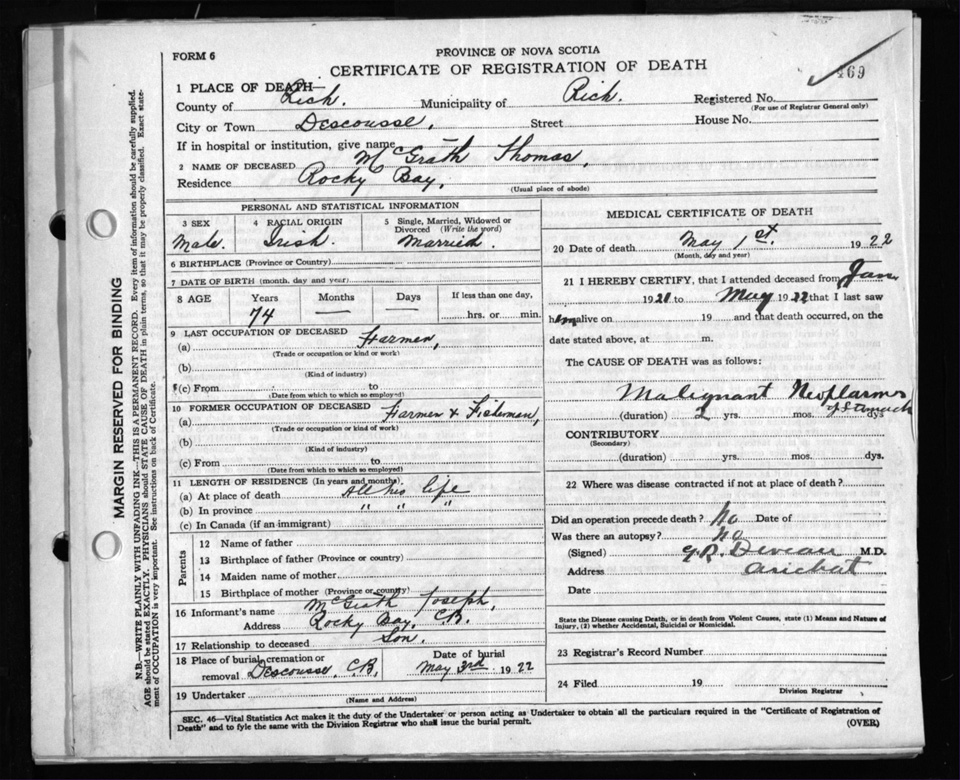 FORM 6
PROVINCE OF NOVA SCOTIA
CERTIFICATE OF REGISTRATION OF DEATH
469
1 PLACE OF DEATH—
County of Rich. Municipality of Rich. Registered No.
(For use of Registrar General only)
City or Town Descousse, Street House No.
If in hospital or institution, give name
2 NAME OF DECEASED McGrath Thomas,
Residence Rocky Bay,
(Usual place of abode)
PERSONAL AND STATISTICAL INFORMATION
3 SEX 4 RACIAL ORIGIN 5 Single, Married, Widowed or Divorced (Write the word)
Male. Irish. Married.
6 BIRTHPLACE (Province or Country)
7 DATE OF BIRTH (month, day and year)
8 AGE Years Months Days If less than one day,
74 — — hrs. or min.
9 LAST OCCUPATION OF DECEASED
(a) Farmer,
(Trade or occupation or kind or work)
(b)
(Kind of industry)
(c) From to
(Date from which to which so employed)
10 FORMER OCCUPATION OF DECEASED
(a) Farmer & Fisheman,
(Trade or occupation or kind of work)
(b)
(Kind of industry)
(c) From to
(Date from which to which so employed)
11 LENGTH OF RESIDENCE (In years and months)
(a) At place of death All his life
(b) In province " " "
(c) In Canada (if an immigrant)
Parents
12 Name of father
13 Birthplace of father (Province or country)
14 Maiden name of mother
15 Birthplace of mother (Province or country)
16 Informant's name McGrath Joseph,
Address Rocky Bay, C.B.
17 Relationship to deceased Son.
18 Place of burial, cremation or removal Descousse, C.B. Date of burial May 3rd 1922
19 Undertaker
(Name and Address)
MEDICAL CERTIFICATE OF DEATH
20 Date of death May 1st. 1922
(Month, day and year)
21 I HEREBY CERTIFY, that I attended deceased from Jan
1921 to May 1922 that I last saw
him alive on 19 and that death occurred, on the
date stated above, at m.
The CAUSE OF DEATH was as follows:
Malignant Neoplasms
of Stomach
(duration) 2 yrs. mos. dys
CONTRIBUTORY
(Secondary)
(duration) yrs. mos. dys.
22 Where was disease contracted if not at place of death?
Did an operation precede death? No Date of
Was there an autopsy? No
(Signed) M.D.
Address Arichat
Date
State the Disease causing Death, or in death from Violent Causes, state (1) Means and Nature of
Injury, (2) whether Accidental, Suicidal or Homicidal.
23 Registrar's Record Number
24 Filed 19
Division Registrar
SEC. 46—Vital Statistics Act makes it the duty of the Undertaker or person acting as Undertaker to obtain all the particulars required in the "Certificate of Registration of
Death" and to fyle the same with the Division Registrar who shall issue the burial permit.
(OVER)
MARGIN RESERVED FOR BINDING
N.B.—WRITE PLAINLY WITH UNFADING INK—THIS IS A PERMANENT RECORD. Every item of information should be carefully supplied.
AGE should be stated EXACTLY. PHYSICIANS should STATE CAUSE OF DEATH in plain terms, so that it may be properly classified. Exact state-
ment of OCCUPATION is very important. See instructions on back of Certificate.